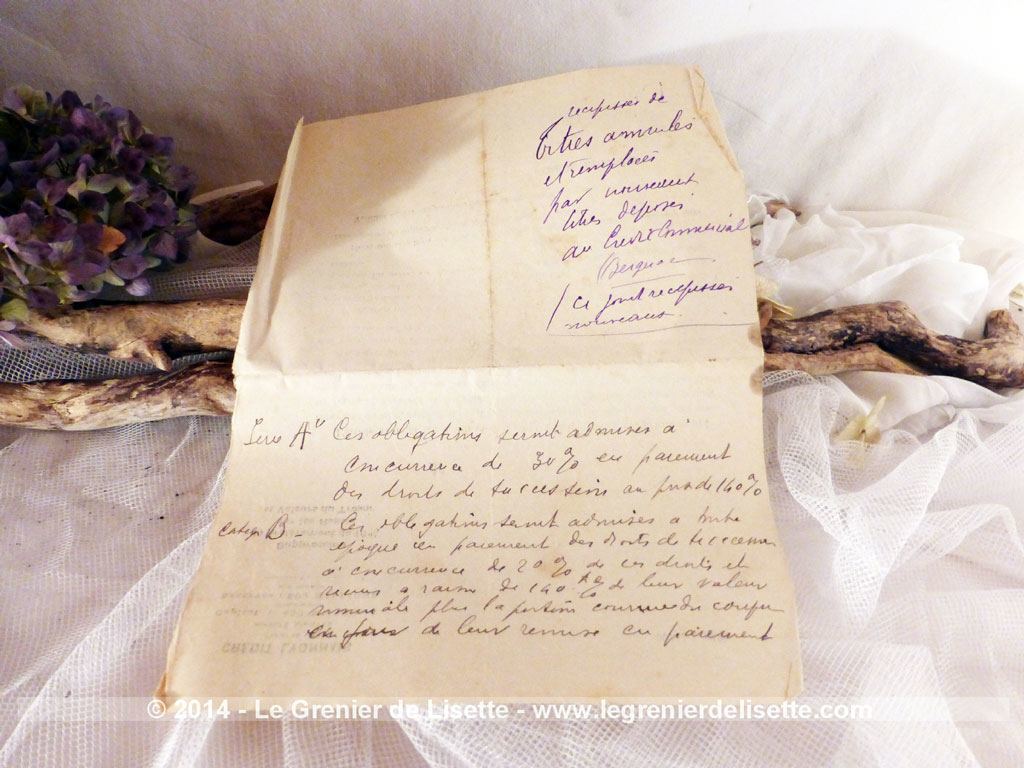 recepissés de
titres annulés
et remplacés
par nouveaux
titres déposés
au Credit Commercial
/ ci joint recepissés
nouveaux.
Série A" Ces obligations seront admises à
concurrence de 30% en paiement
des droits de succession au prix de 140%
B - Ces obligations seront admises à toute
époque en paiement des droits de succession
à concurrence de 20% de ces droits et
à raison de 140 % de leur valeur
nominale plus la portion courue du coupon
de leur remise en paiement
CREDIT LYONNAIS
© 2014 - Le Grenier de Lisette - www.legrenierdelisette.com